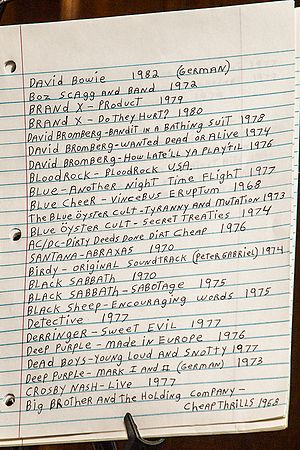 David Bowie 1982 (German)
Boz Scagg and Band 1972
Brand X - Product 1979
Brand X - Do They Hurt? 1980
David Bromberg - Bandit in a Bathing Suit 1978
David Bromberg - Wanted Dead or Alive 1974
David Bromberg - How Late'll Ya Play'til 1976
Bloodrock - Bloodrock U.S.A.
Blue - Another Night Time Flight 1977
Blue Cheer - Vincebus Eruptum 1968
The Blue Öyster Cult - Tyranny and Mutation 1973
Blue Öyster Cult - Secret Treaties 1974
AC/DC - Dirty Deeds Done Dirt Cheap 1976
Santana - Abraxas 1970
Birdy - Original Soundtrack (Peter Gabriel) 1974
Black Sabbath 1970
Black Sabbath - Sabotage 1975
Black Sheep - Encouraging Words 1975
Detective 1977
Derringer - Sweet Evil 1977
Deep Purple - Made in Europe 1976
Dead Boys - Young Loud and Snotty 1977
Deep Purple - Mark I and II (German) 1973
Crosby Nash - Live 1977
Big Brother and the Holding Company -
Cheap Thrills 1968